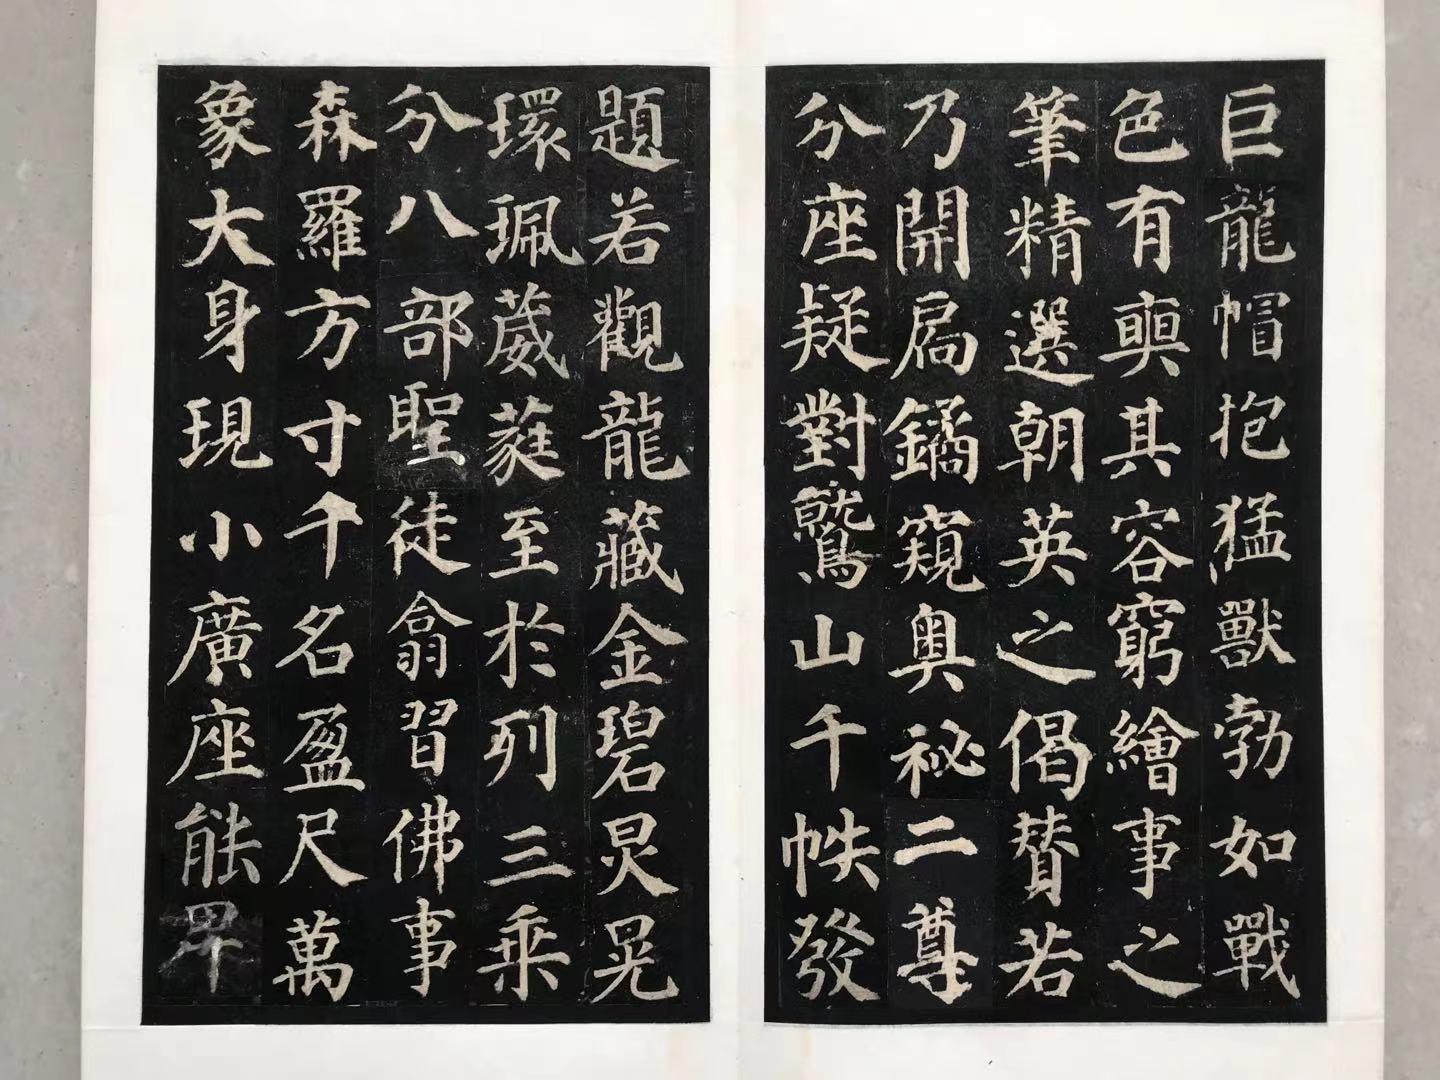 巨龍帽抱猛獸勃如戰
色有奭其容窮繪事之
筆精選朝英之偈贊若
乃開扃鐍窺奧祕二尊
分座疑對鷲山千帙發
題若觀龍藏金碧炅晃
環珮葳蕤至於列三乘
分八部聖徒翕習佛事
森羅方寸千名盈尺萬
象大身現小廣座能卑